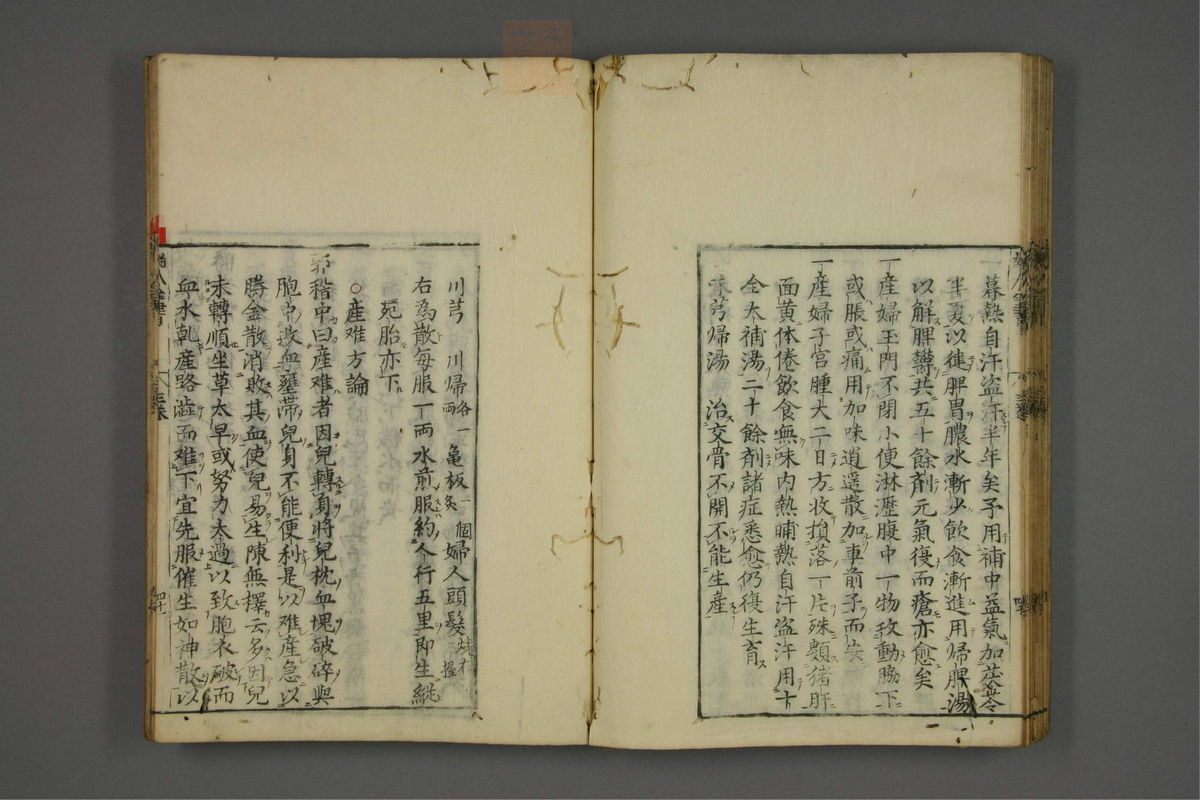 暮熱自汗盗汗半年矣予用補中益氣加茯苓
半夏以徤脾胃膿水漸少飲食漸進用帰脾湯
以解脾欝共五十餘剤元氣復而瘡亦愈矣
一産婦玉門不閉小便淋瀝腹中一物攻動脇下
或脹或痛用加味逍遥散加車前子而安
一産婦子宮腫大二日方收損落一片殊類猪肝
面黄体倦飲食無味内熱晡熱自汗盗汗用十
全大補湯二十餘剤諸症悉愈仍復生育
味芎帰湯　治交骨不開不能生産
川芎　川帰各一両　亀板一個炙　婦人頭髮焼存握
右為散毎服一両水煎服約人行五里即生縦
死胎亦下
○産难方論
郭稽中曰産难者因兒轉身將兒枕血塊破碎與
胞中敗血壅滞兒身不能便利是以难産急以
勝金散消敗其血使兒易生陳無擇云多因兒
未轉順坐草太早或努力太過以致胞衣破而
血水乾産路澁而难下宜先服催生如神散以